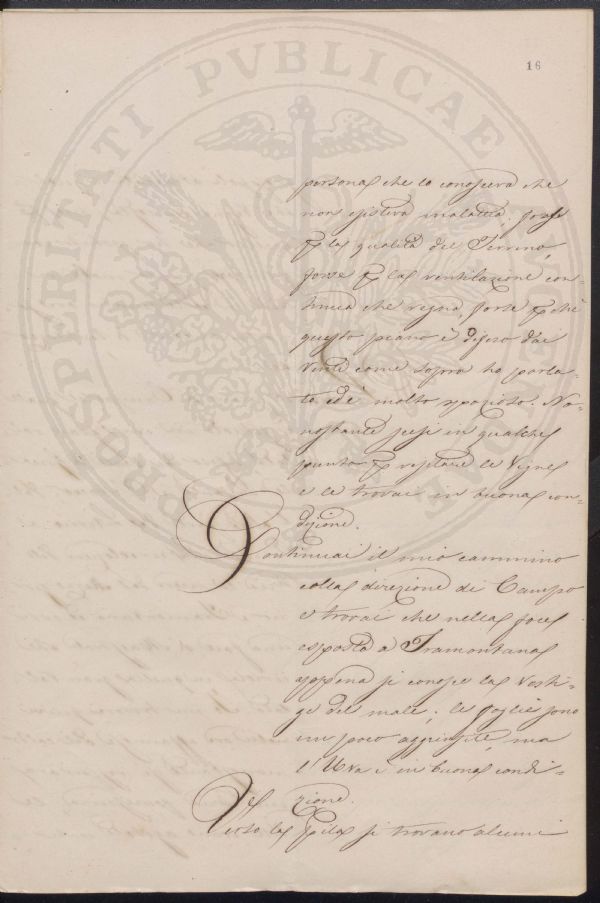 16
PROSPERITATI PVBLICAE
persona che lo conosceva che
non esisteva malattia, forse
p la qualità del Terreno,
forse p la ventilazione con-
tinua che regna, forse p chè
questo piano è difeso dai
venti come sopra ho porta-
to ed è molto spazioso. No-
nostante scesi in qualche
punto p visitare le Vigne
e le trovai in buona con-
dizione.
Continuai il mio cammino
colla direzione di Campo
e trovai che nella foce
esposta a Tramontana
appena si conosce la vesti-
ge del male; le foglie sono
un poco appassite, ma
l'Uva è in buona condi-
zione.
Verso la Pila si trovano alcuni